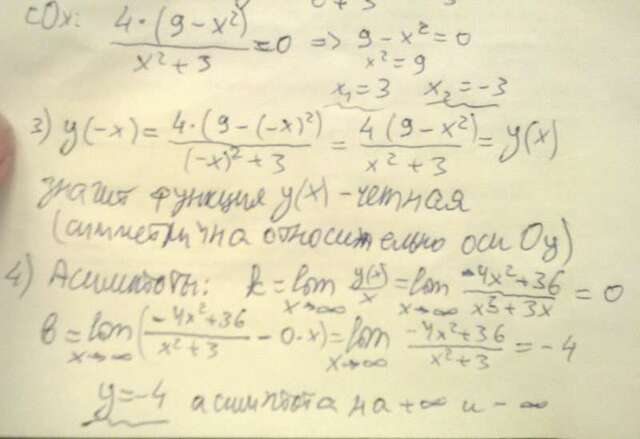 сOx: 4·(9-x²)/(x²+3) = 0 => 9-x²=0
x²=9
x₁=3 x₂=-3
3) y(-x) = 4·(9-(-x)²)/((-x)²+3) = 4(9-x²)/(x²+3) = y(x)
значит функция y(x) - четная
(симметрична относительно оси Oy)
4) Асимптоты: k = lim x→∞ y(x)/x = lim x→∞ (-4x²+36)/(x³+3x) = 0
b = lim x→∞ ((-4x²+36)/(x²+3) - 0·x) = lim x→∞ (-4x²+36)/(x²+3) = -4
y=-4 асимптота на +∞ и -∞